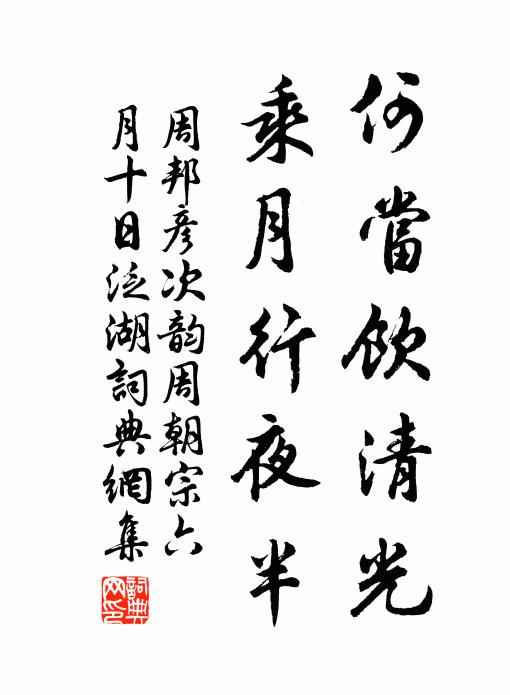 何當飲清光
乘月行夜半
周邦彥次韵周朝宗六
月十日泛湖詞典網集
詞典
网印